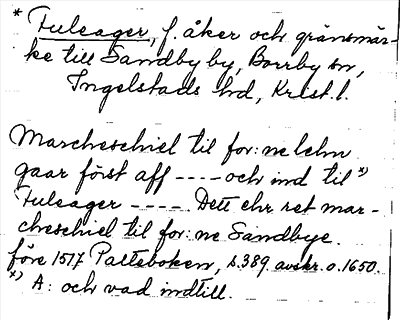 * Fuleager, f. åker och gränsmär-
ke till Sandby by, Borrby sn,
Ingelstads hd, Krist. l.
Marcheschiel til for:ne lehn
gaar först aff ---- och ind til *)
Fuleager ---- Dett ehr ret mar-
cheschiel til for:ne Sandbye.
före 1517 Palteboken, s. 389 avskr. o. 1650.
*) A: och vad indtill.